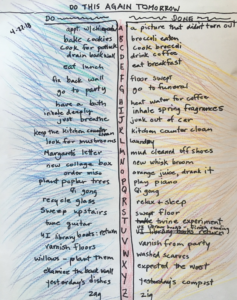 DO THIS AGAIN TOMORROW
DO DONE
4-22-18
appt. A a picture that didn't turn out
bake cookies B broccoli eaten
cook for potluck C cook broccoli
drain back D drink coffee
eat lunch E eat breakfast
fix back wall F floor swept
go to party G go to funeral
have a bath H heat water for coffee
inhale deeply I inhale spring fragrances
just breathe J junk out of car
keep the kitchen counter clean K kitchen counter clean
look for mushrooms L laundry
Margaret's letter M mud cleaned off shoes
new collage box N new whisk broom
order miso O orange juice, drank it
plant poplar trees P play piano
Qi gong Q Qi gong
recycle glass R relax & sleep
sweep upstairs S swept floor
tune guitar T twine experiment
U library books return U
varnish floors V varnish from party
willows - plant them W washed scarves
examine the back wall X expected the most
yesterday's dishes Y yesterday's compost
zag Z zig